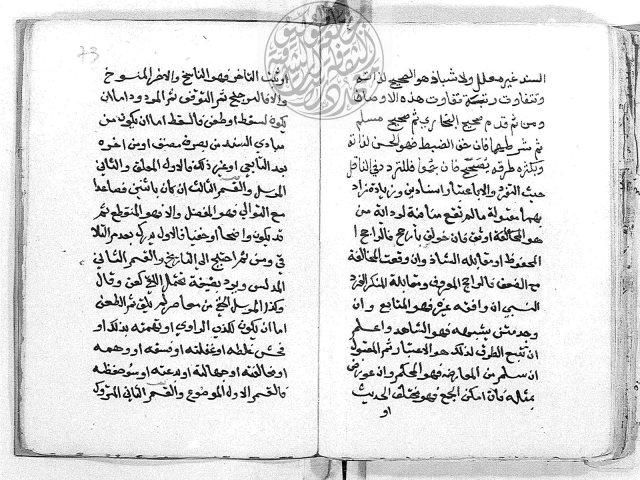 السند غير معلل ولا شاذ هو الصحيح لذاته
وتتفاوت رتبته بتفاوت هذه الاوصاف
ومن ثم قدم صحيح البخاري ثم صحيح مسلم
ثم شرطهما فان خف الضبط فهو الحسن لذاته
وبكثرة طرقه يصحح فان جمعا فللتردد في الناقل
حيث التفرد والا باعتبار اسنادين وزيادة
مقبولة مالم تقع منافية لرواية من
هو اوثق فان خولف بارجح فالراجح
المحفوظ ومقابله الشاذ وان وقعت المخالفة
مع الضعف فالراجح المعروف ومقابله المنكر والفرد
النسبي ان وافقه غيره فهو المتابع وان
وجد متن يشبهه فهو الشاهد واعلم
ان تتبع الطرق لذلك هو الاعتبار ثم المقبول
ان سلم من المعارضة فهو المحكم وان عورض
بمثله فان امكن الجمع فهو مختلف الحديث
او
73
او ثبت المتاخر فهو الناسخ والاخر المنسوخ
والا فالترجيح ثم التوقف ثم المردود اما ان
يكون لسقط او طعن فالسقط اما ان يكون من
مبادي السند من تصرف مصنف او من اخره
بعد التابعي او غير ذلك فالاول المعلق والثاني
المرسل والقسم الثالث ان كان باثنين فصاعدا
مع التوالي فهو المعضل والا فهو المنقطع ثم
قد يكون واضحا او خفيا فالاول يدرك بعدم التلا
قي ومن ثم احتيج الى التاريخ والقسم الثاني
المدلس ويرد بصيغة تحتمل اللقي كعن وقال
وكذا المرسل الخفي من معاصر لم يلق ثم الطعن
اما ان يكون لكذب الراوي او تهمته بذلك او
فحش غلطه او غفلته او فسقه او وهمه
او مخالفته او جهالته او بدعته او سوء حفظه
فالقسم الاول الموضوع والقسم الثاني المتروك